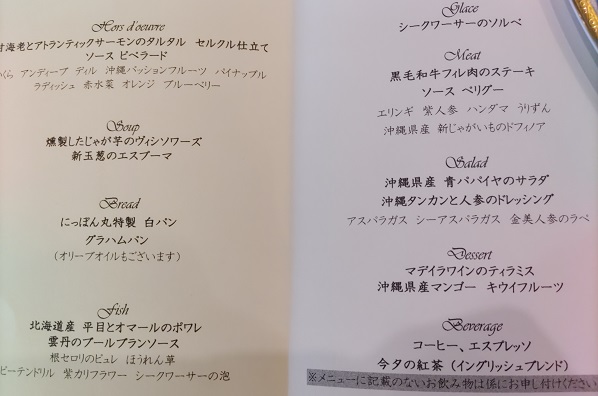 Hors d'oeuvre
海老とアトランティックサーモンのタルタル セルクル仕立て
ソース ピペラード
アンディーブ ディル 沖縄パッションフルーツ パイナップル
ラディッシュ 赤水菜 オレンジ ブルーベリー
Soup
燻製したじゃが芋のヴィシソワーズ
新玉葱のエスプーマ
Bread
にっぽん丸特製 白パン
グラハムパン
(オリーブオイルもございます)
Fish
北海道産 平目とオマールのポワレ
雲丹のブールブランソース
根セロリのピュレ ほうれん草
ピーテンドリル 紫カリフラワー シークワーサーの泡
Glace
シークワーサーのソルベ
Meat
黒毛和牛フィレ肉のステーキ
ソース ペリグー
エリンギ 紫人参 ハンダマ うりずん
沖縄県産 新じゃがいものドフィノア
Salad
沖縄県産 青パパイヤのサラダ
沖縄タンカンと人参のドレッシング
アスパラガス シーアスパラガス 金美人参のラペ
Dessert
マデイラワインのティラミス
沖縄県産マンゴー キウイフルーツ
Beverage
コーヒー、エスプレッソ
今夕の紅茶 (イングリッシュブレンド)
※メニューに記載のないお飲み物は係にお申し付けください